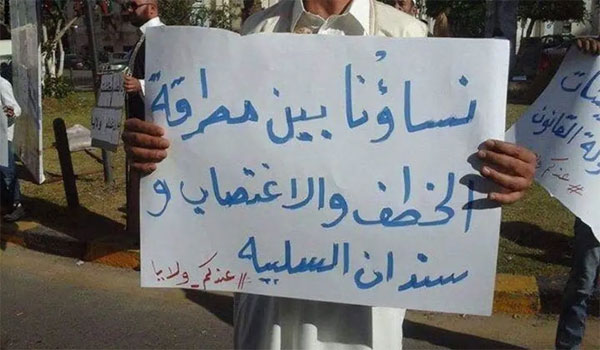 نساؤنا بين مطرقة
الخطف والاغتصاب و
سندان السلبيه
#عندكم_ولايا
دولة القانون
#عندكم_